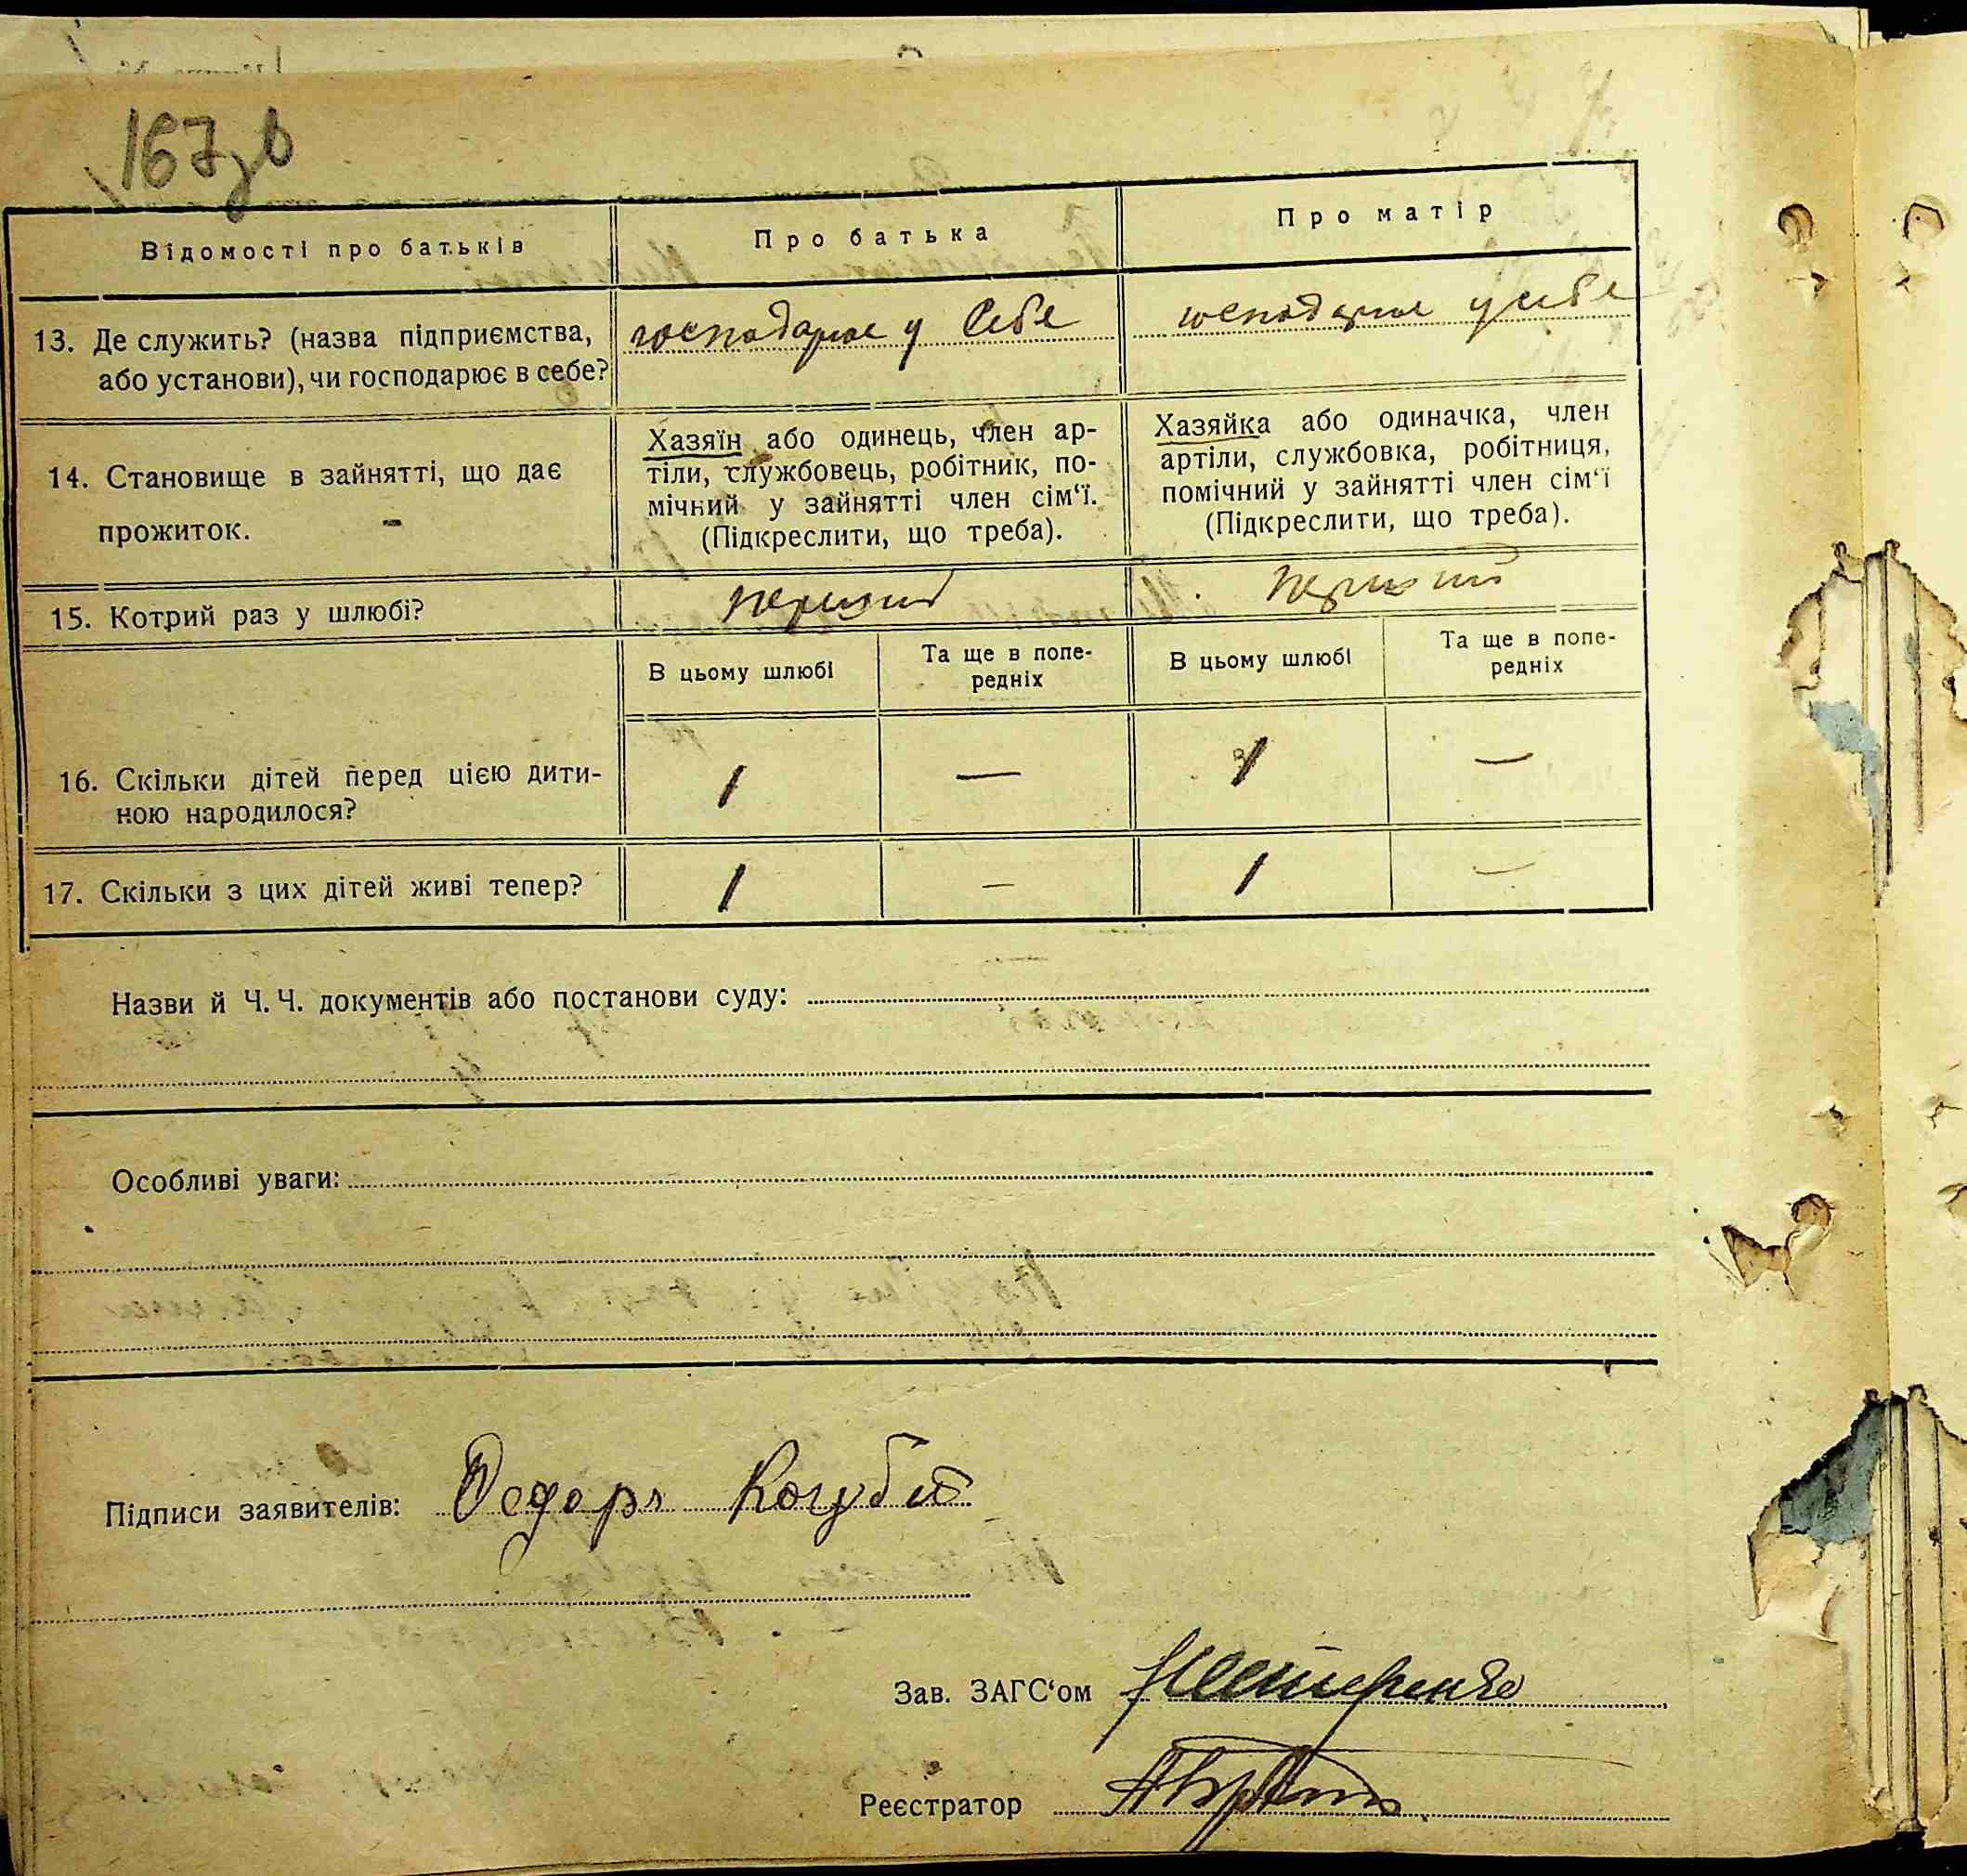 167зв
Відомості про батьків
Про батька
Про матір
13. Де служить? (назва підприємства,
або установи), чи господарює в себе?
господарює у себе
господарює у себе
14. Становище в зайнятті, що дає
прожиток.
Хазяїн або одинець, член ар-
тіли, службовець, робітник, по-
мічний у зайнятті член сім‘ї.
(Підкреслити, що треба).
Хазяйка або одиначка, член
артіли, службовка, робітниця,
помічний у зайнятті член сім‘ї
(Підкреслити, що треба).
15. Котрий раз у шлюбі?
перший
перший
В цьому шлюбі
Та ще в попе-
редніх
В цьому шлюбі
Та ще в попе-
редніх
16. Скільки дітей перед цією дити-
ною народилося?
1 — 1 —
17. Скільки з цих дітей живі тепер?
1 — 1 —
Назви й Ч. Ч. документів або постанови суду:
Особливі уваги:
Підписи заявителів:
Зав. ЗАГС‘ом Нестеренко
Реєстратор